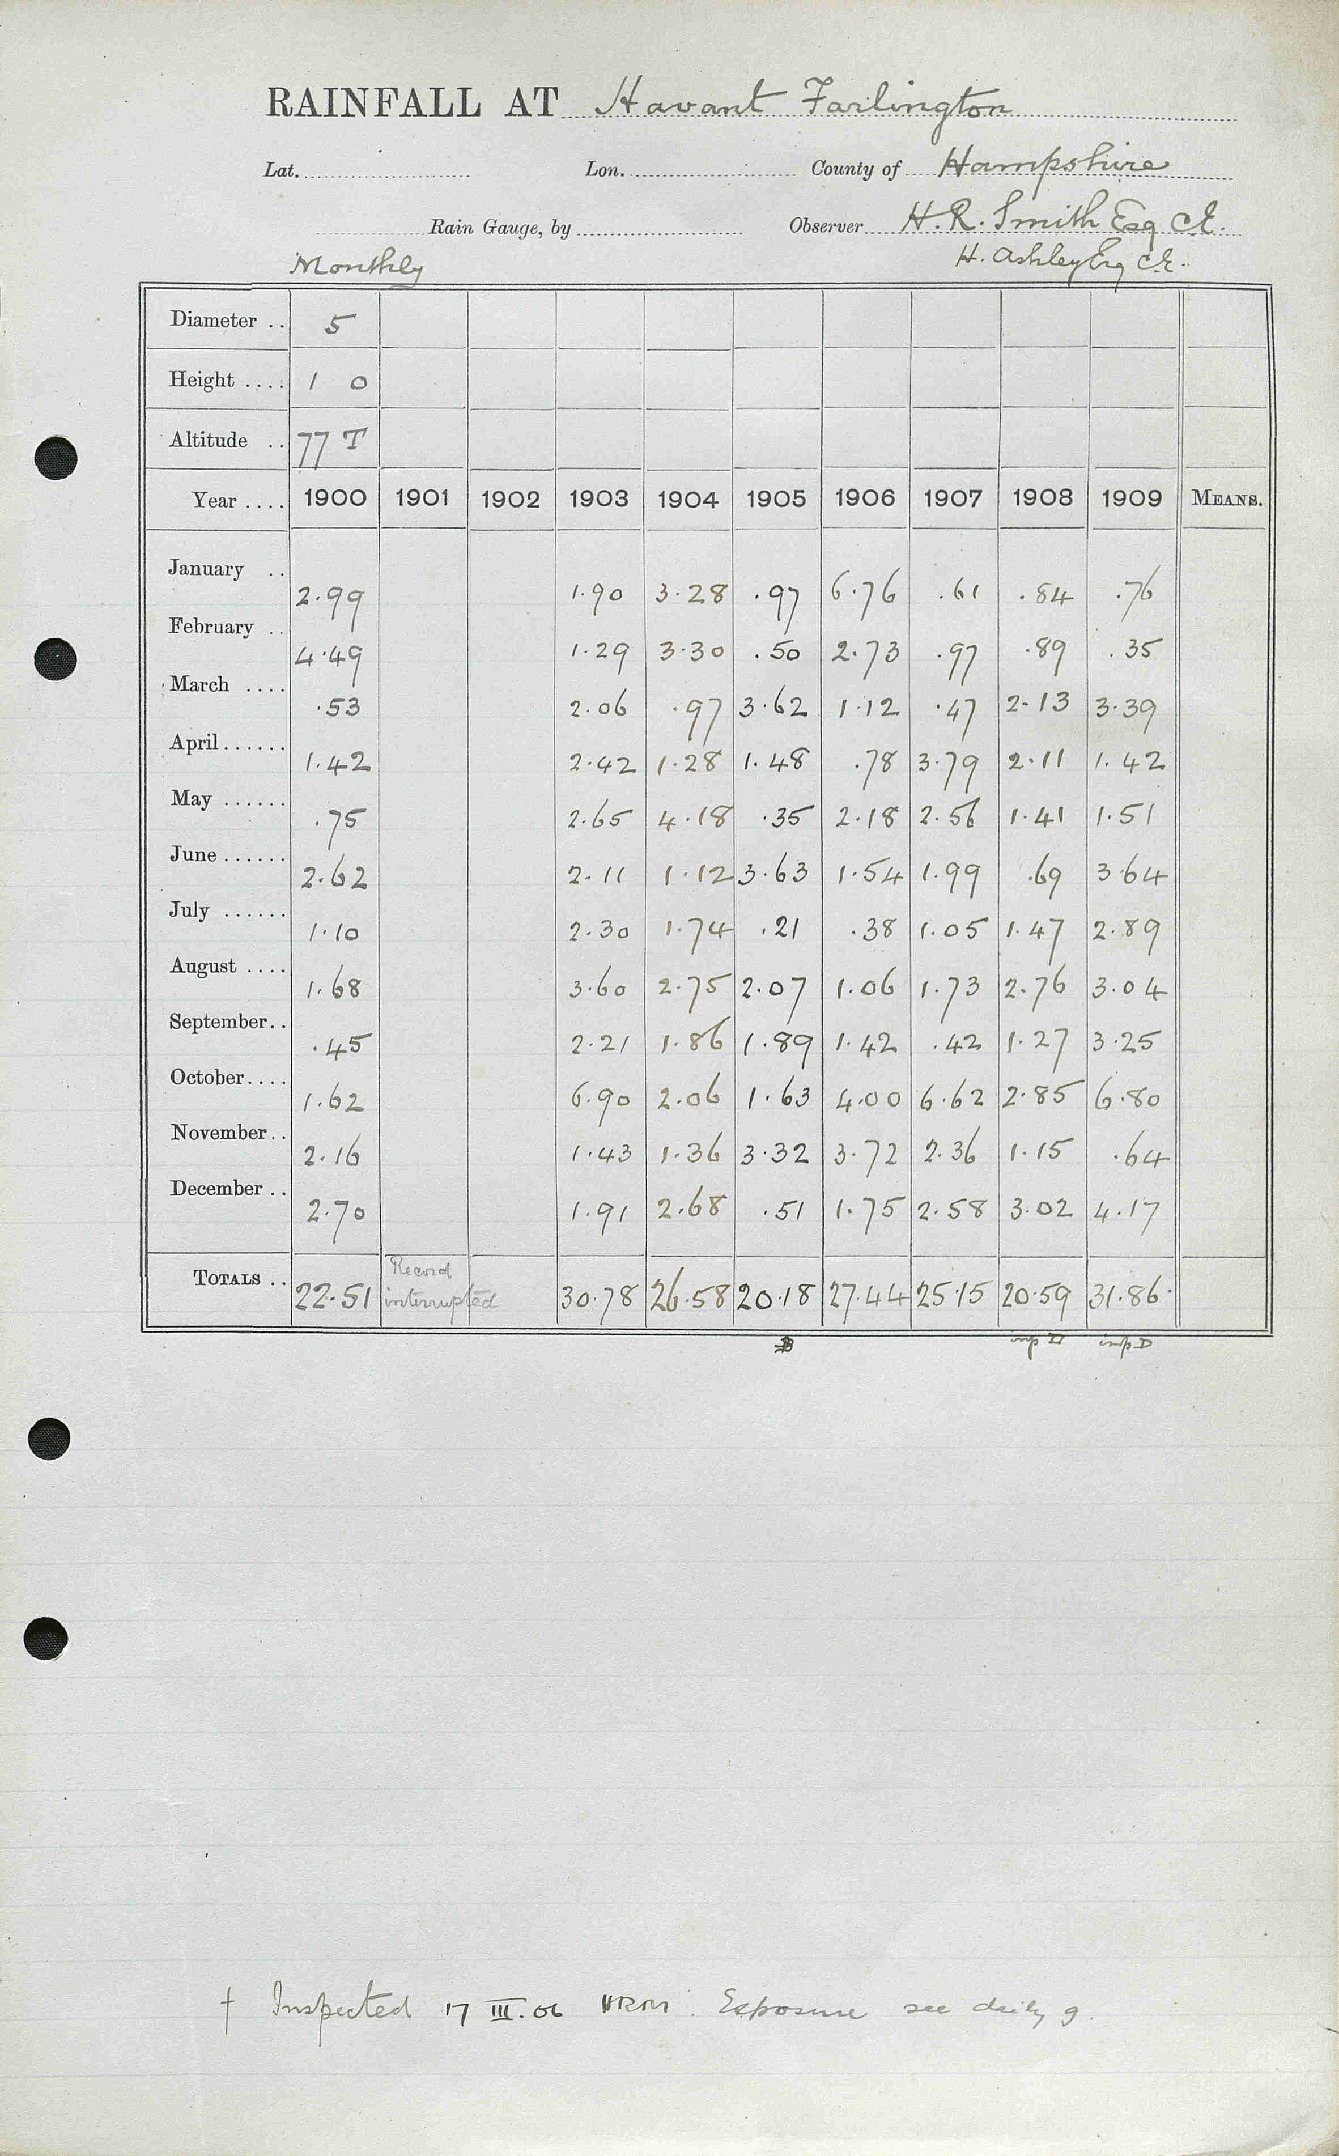 RAINFALL AT Havant Farlington
Lat. Lon. County of Hampshire
Rain Gauge, by Observer H. R. Smith Esq C.E.
Monthly H. Ashley Esq C.E.
Diameter .. 5
Height .... 1 0
Altitude .. 77 T
Year .... 1900 1901 1902 1903 1904 1905 1906 1907 1908 1909 MEANS.
January .. 2.99 1.90 3.28 .97 6.76 .61 .84 .76
February .. 4.49 1.29 3.30 .50 2.73 .97 .89 .35
March .... .53 2.06 .97 3.62 1.12 .47 2.13 3.39
April ...... 1.42 2.42 1.28 1.48 .78 3.79 2.11 1.42
May ...... .75 2.65 4.18 .35 2.18 2.56 1.41 1.51
June ...... 2.62 2.11 1.12 3.63 1.54 1.99 .69 3.64
July ...... 1.10 2.30 1.74 .21 .38 1.05 1.47 2.89
August .... 1.68 3.60 2.75 2.07 1.06 1.73 2.76 3.04
September.. .45 2.21 1.86 1.89 1.42 .42 1.27 3.25
October.... 1.62 6.90 2.06 1.63 4.00 6.62 2.85 6.80
November.. 2.16 1.43 1.36 3.32 3.72 2.36 1.15 .64
December .. 2.70 1.91 2.68 .51 1.75 2.58 3.02 4.17
TOTALS .. 22.51 Record interrupted 30.78 26.58 20.18 27.44 25.15 20.59 31.86
imp D imp D
† Inspected 17 III.06 HRM. Exposure see daily g.